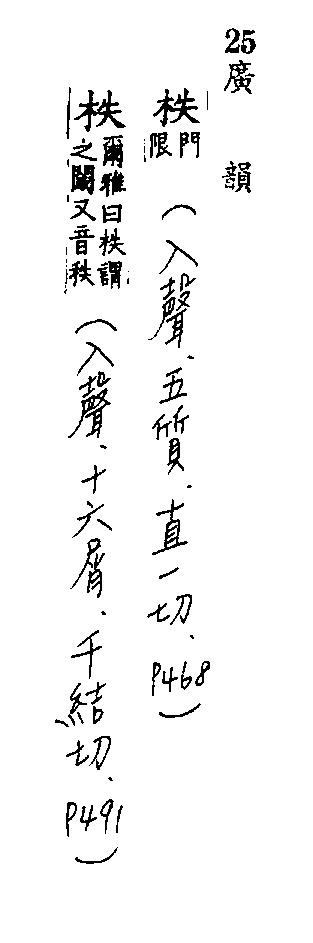 25廣韻
柣門限(入聲、五質、直一切、P468)
柣爾雅曰柣謂之閾又音秩(入聲、十六屑、千結切、P491)